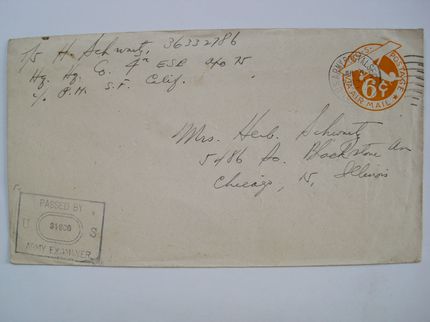 T/5 H. Schwartz, 36332786
Hq. Hq. Co. 4th ESB APO 75
c/o P.M. S.F. Calif.
POSTAGE
6¢
VIA AIR MAIL
Mrs. Herb. Schwartz
5486 So. Blackstone Ave
Chicago, 15, Illinois
PASSED BY
U S
ARMY EXAMINER